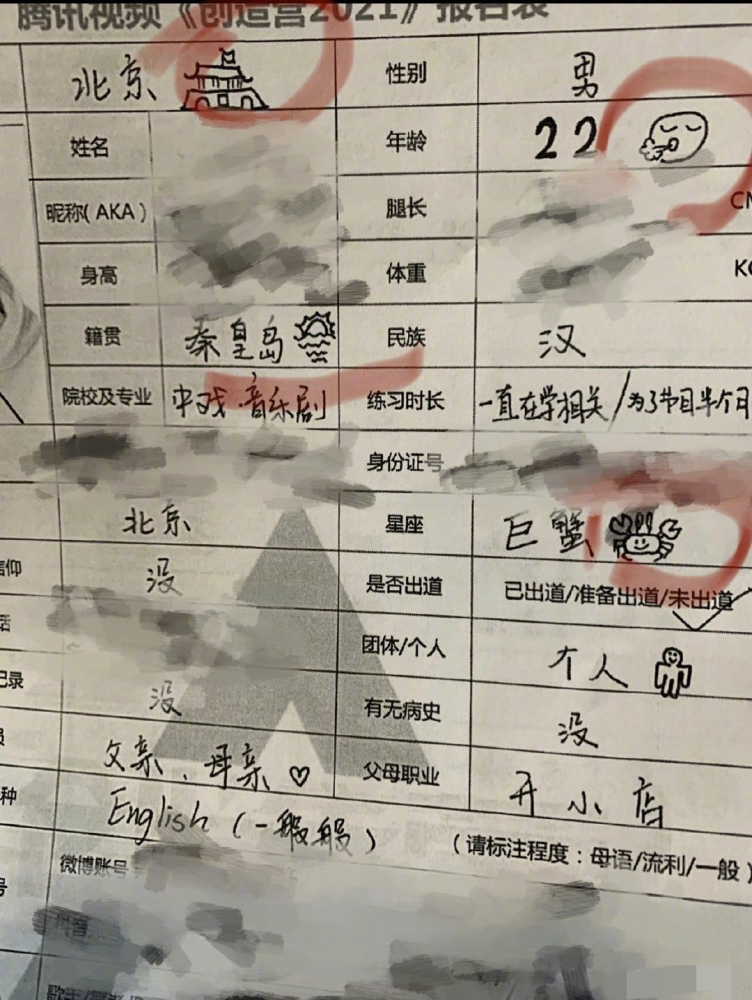 腾讯视频《创造营2021》报名表
北京 性别 男
姓名 年龄 22
昵称(AKA) 腿长 CM
身高 体重 KG
籍贯 秦皇岛 民族 汉
院校及专业 中戏·音乐剧 练习时长 一直在学相关/为了节目半个月
身份证号
北京 星座 巨蟹
信仰 没 是否出道 已出道/准备出道/未出道
话 团体/个人 个人
记录 没 有无病史 没
员 父亲、母亲♡ 父母职业 开小店
种 English(一般般) (请标注程度:母语/流利/一般)
号 微博账号
抖音